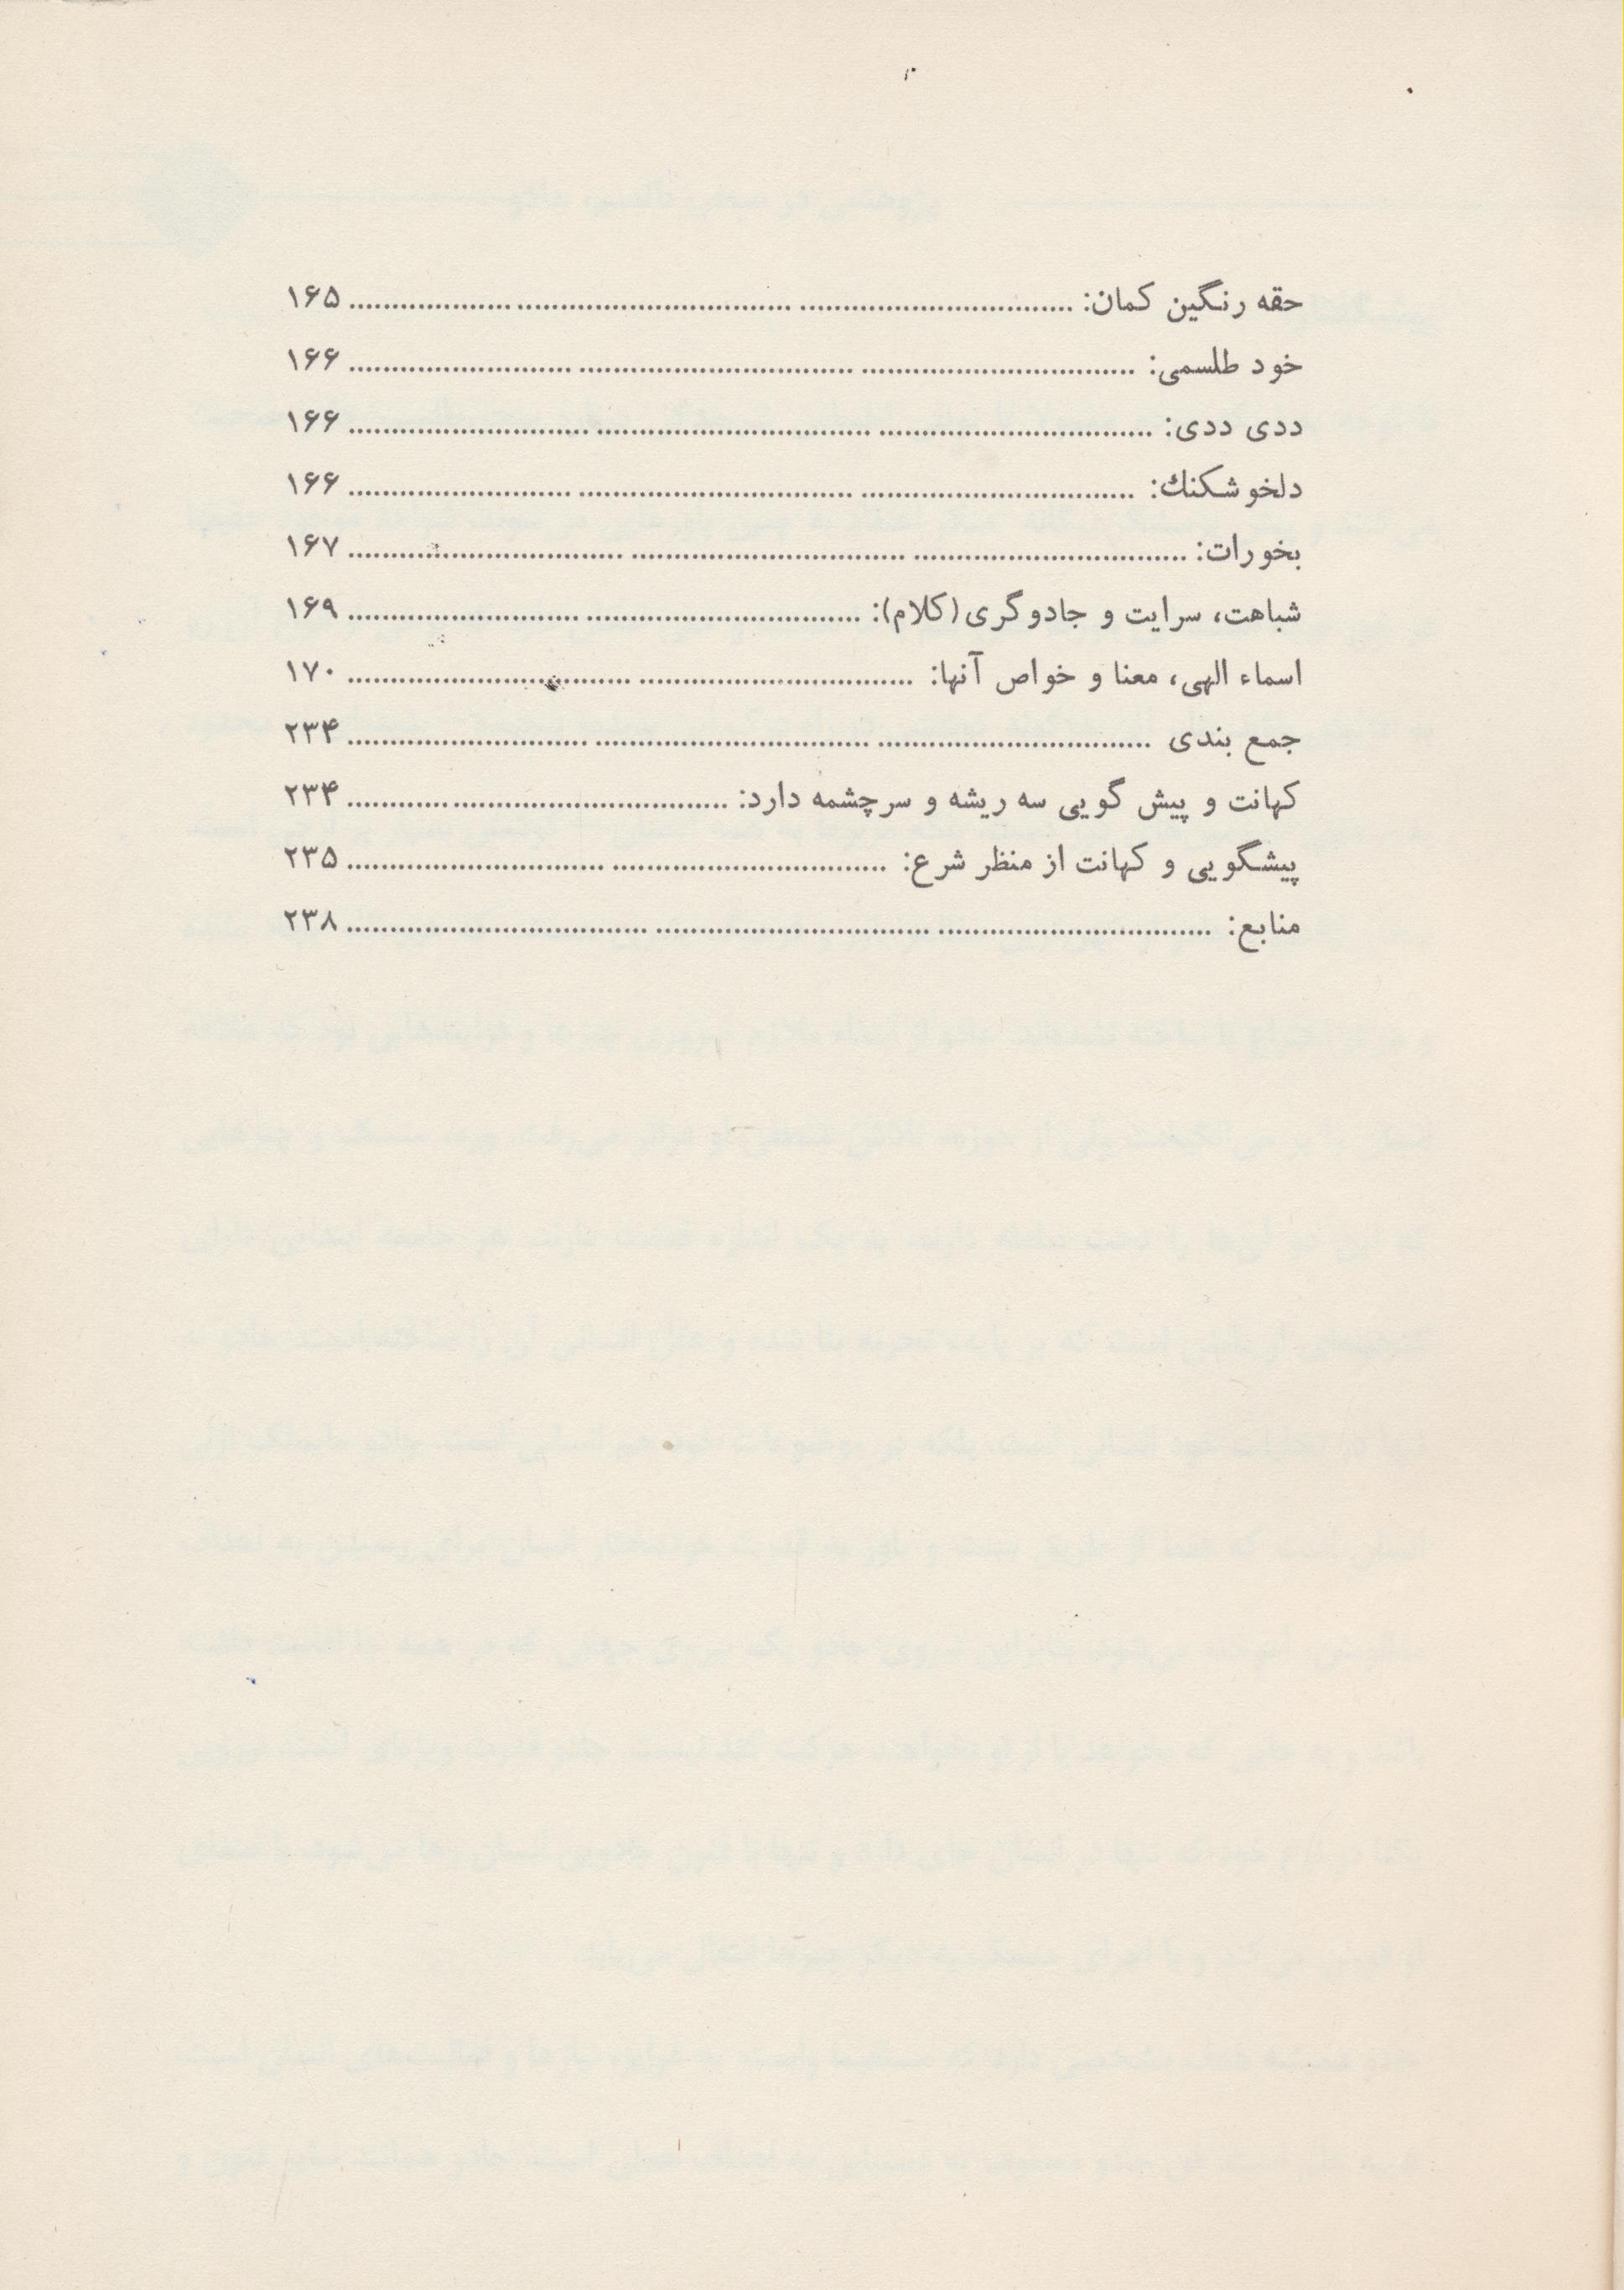 حقه رنگین کمان: ........................................................................ ۱۶۵
خود طلسمی: ........................................................................ ۱۶۶
ددی ددی: ........................................................................ ۱۶۶
دلخوشکنك: ........................................................................ ۱۶۶
بخورات: ........................................................................ ۱۶۷
شباهت، سرایت و جادوگری(کلام): ........................................................ ۱۶۹
اسماء الهی، معنا و خواص آنها: ........................................................ ۱۷۰
جمع بندی ........................................................................ ۲۳۴
کهانت و پیش گویی سه ریشه و سرچشمه دارد: ........................................ ۲۳۴
پیشگویی و کهانت از منظر شرع: ........................................................ ۲۳۵
منابع: ........................................................................ ۲۳۸